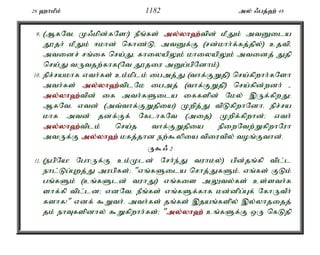 26 ஹாமீம் 1182 அல் ஃபத்ஹ் 48
9. (ஆகவே முஃமின்களே!) நீங்கள் அல்லாஹ்வின் மீதும் அவனுடைய
தூதர் மீதும் ஈமான் கொண்டு, அவனுக்கு (சன்மார்க்கத்தில்) உதவி,
அவனைச் சங்கை செய்து, காலையிலும் மாலையிலும் அவனைத் துதி
செய்து வருவதற்காக(வே தூதரை அனுப்பினோம்).
10. நிச்சயமாக எவர்கள் உம்மிடம் பைஅத்து (வாக்குறுதி) செய்கிறார்களோ
அவர்கள் அல்லாஹ்விடமே பைஅத் (வாக்குறுதி) செய்கின்றனர் -
அல்லாஹ்வின் கை அவர்களுடைய கைகளின் மேல் இருக்கிறது;
ஆகவே, எவன் (அவ்வாக்குறுதியை) முறித்து விடுகிறானோ, நிச்சய
மாக அவன் தனக்குக் கேடாகவே (அதை) முறிக்கிறான்; எவர்
அல்லாஹ்விடம் செய்த வாக்குறுதியை நிறைவேற்றுகிறாரோ
அவருக்கு அல்லாஹ் மகத்தான நற்கூலியை விரைவில் வழங்குவான்.
ருகூஃ 2
11. (நபியே! போருக்கு உம்முடன் சேர்ந்து வராமல்) பின்தங்கி விட்ட
நாட்டுப்புறத்து அரபிகள்: "எங்களுடைய சொத்துகளும், எங்கள் குடும்
பங்களும் (உங்களுடன் வராது) எங்களை அலுவல்கள் உள்ளவர்க
ளாக்கி விட்டன; எனவே, நீங்கள் எங்களுக்காக மன்னிப்புக் கோருவீர்
களாக!" எனக் கூறுவர். அவர்கள் தங்கள் இதயங்களில் இல்லாததைத்
தம் நாவுகளினால் கூறுகிறார்கள்; "அல்லாஹ் உங்களுக்கு ஒரு கெடுதி